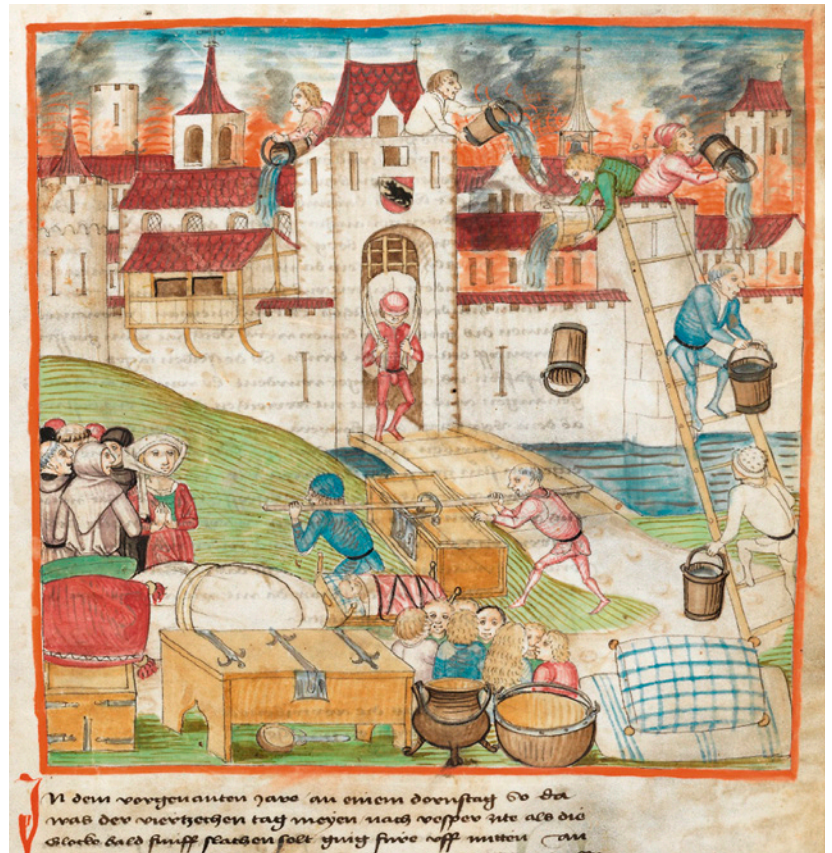 In dem vorgenanten Jare an einem dornstag So da
was der viertzechen tag meyen nach vesper zite als die
Glocke bald slachen solt gieng fure uff mitten an